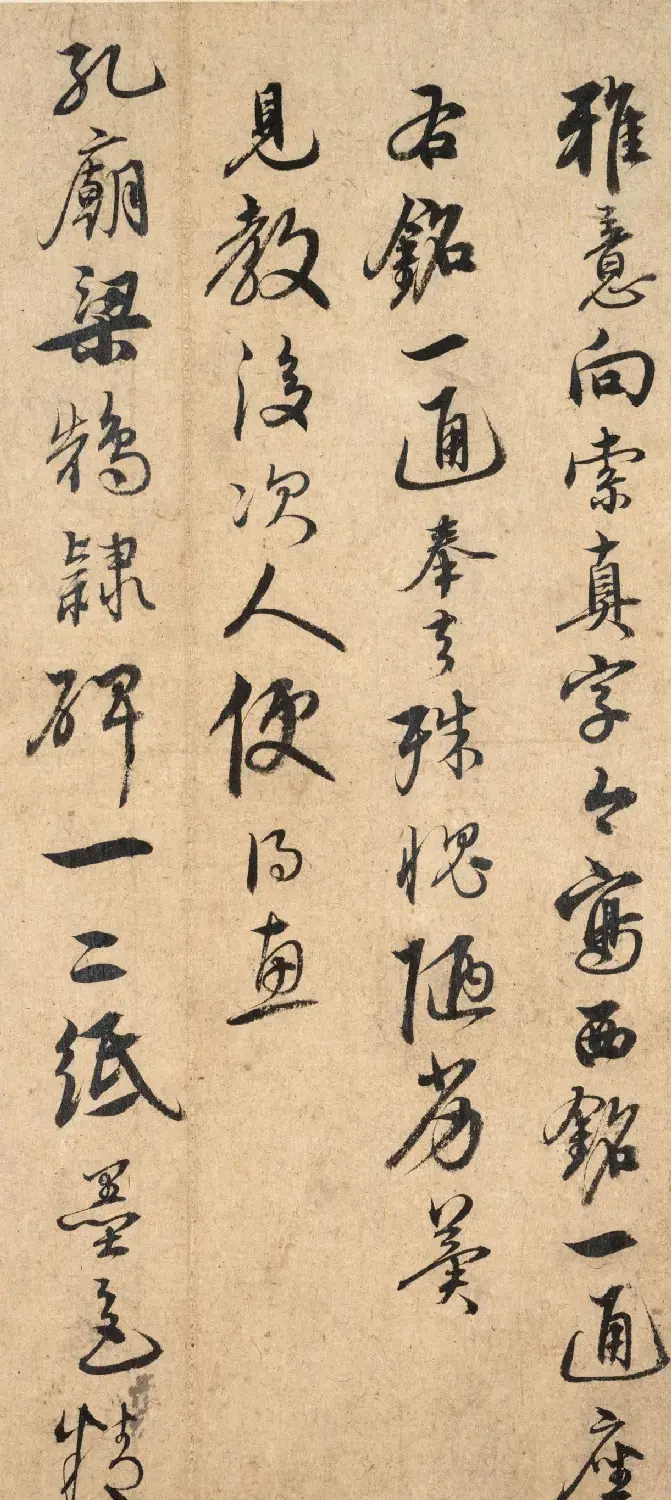 雅意向索真字今寫西銘一通座
右銘一通奉去殊愧陋劣冀
見教後次人便得惠
孔廟梁鵠隸碑一二紙墨色精